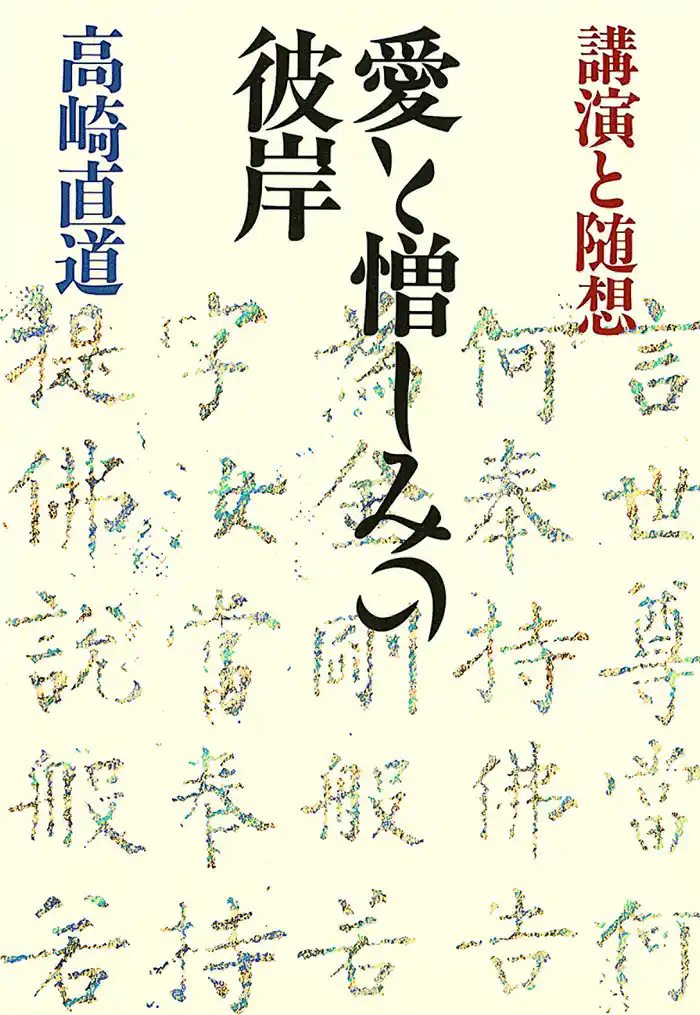 講演と随想
愛と憎しみの
彼岸
高崎直道
言世尊當何
何奉持佛告
為金剛般若
字汝當奉持
提佛說般若